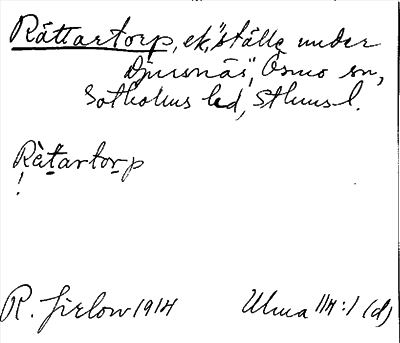 Råttartorp, ek, "ställe under
Djursnäs", Ösmo sn,
Sotholms hd, Sthms l.
Råtartorp
R. Jirlow 1914 Ulma 111:1 (d)